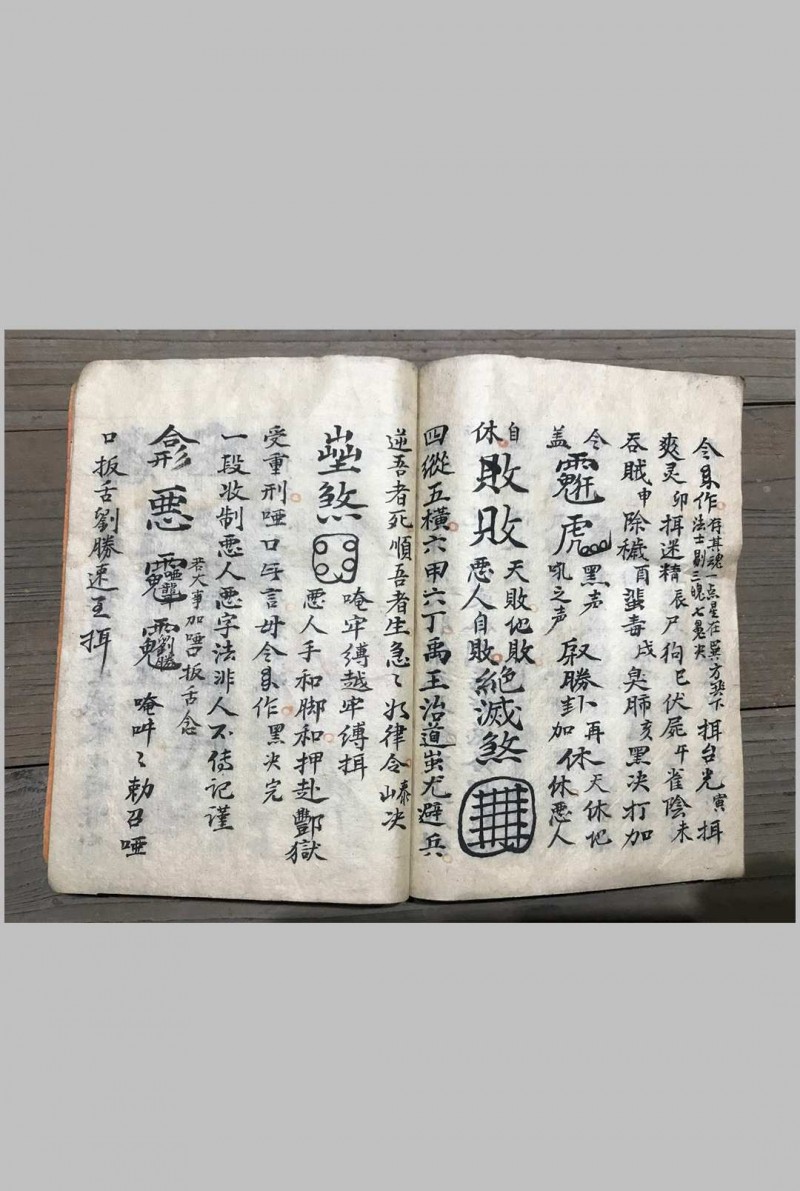 令㒷作存其魂一点星在巽方共下
法士剔三魂七魄决
揖台光寅揖
爽灵卯揖迷精辰尸狗巳伏屍午雀陰未
吞賊申除穢酉蜚毒戌臭肺亥黑决打加
令
盖
虎
黑声
吼之声
取勝卦
卜再
加
休
天休地
休悪人
自
休
敗敗
天敗地敗
悪人自敗
絕滅煞
四縱五橫六甲六丁禹王治道蚩尤避兵
逆吾者死順吾者生急〻如律令
决
煞
唵牢縛越牢縛揖
悪人手和脚和押赴酆獄
受重刑唖口
言
令
作黑决完
一段收制悪人悪字法非人不傳記謹
悪
若大事加唖口扳舌念
唵吽〻勅召唖
口扳舌劉勝速至揖